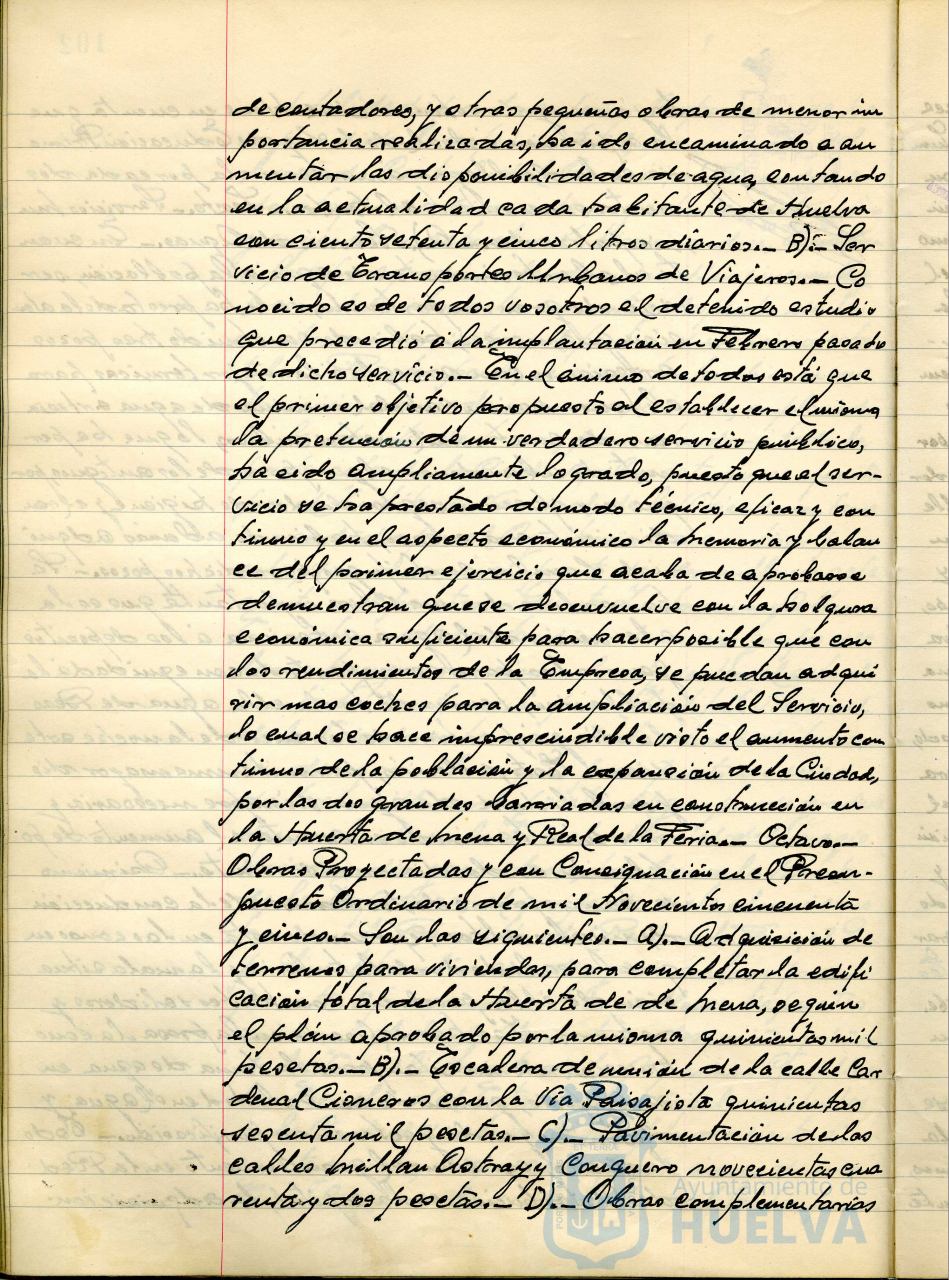 de contadores, y otras pequeñas obras de menor im
portancia realizadas, ha ido encaminado a au
mentar las disponibilidades de agua, contando
en la actualidad cada habitante de Huelva
con ciento setenta y cinco litros diarios.- B).- Ser
vicio de Transportes Urbanos de Viajeros.- Co
nocido es de todos vosotros el detenido estudio
que precedió a la implantación en Febrero pasado
de dicho servicio.- En el ánimo de todos está que
el primer objetivo propuesto al establecer el mismo,
la pretención de un verdadero servicio público,
ha sido ampliamente logrado, puesto que el ser-
vicio se ha prestado de modo técnico, eficaz y con
tinuo y en el aspecto económico la Memoria y balan
ce del primer ejercicio que acaba de aprobarse
demuestran que se desenvuelve con la holgura
económica suficiente para hacer posible que con
los rendimientos de la Empresa, se puedan adqui
rir mas coches para la ampliación del Servicio,
lo cual se hace imprescindible visto el aumento con
tinuo de la población y la expansión de la Ciudad,
por las dos grandes barriadas en construcción en
la Huerta de Mena y Real de la Feria.- Octavo.-
Obras Proyectadas y con Consignación en el Presu-
puesto Ordinario de mil Novecientos cincuenta
y cinco.- Son las siguientes.- A).- Adquisición de
terrenos para viviendas, para completar la edifi
cación total de la Huerta de de Mena, según
el plán aprobado por la misma quinientas mil
pesetas.- B).- Escalera de unión de la calle Car
denal Cisneros con la Vía Paisajista quinientas
sesenta mil pesetas.- C).- Pavimentación de las
calles Millan Astray y Conquero novecientas cua
renta y dos pesetas.- D).- Obras complementarias
Ayuntamiento de
HUELVA